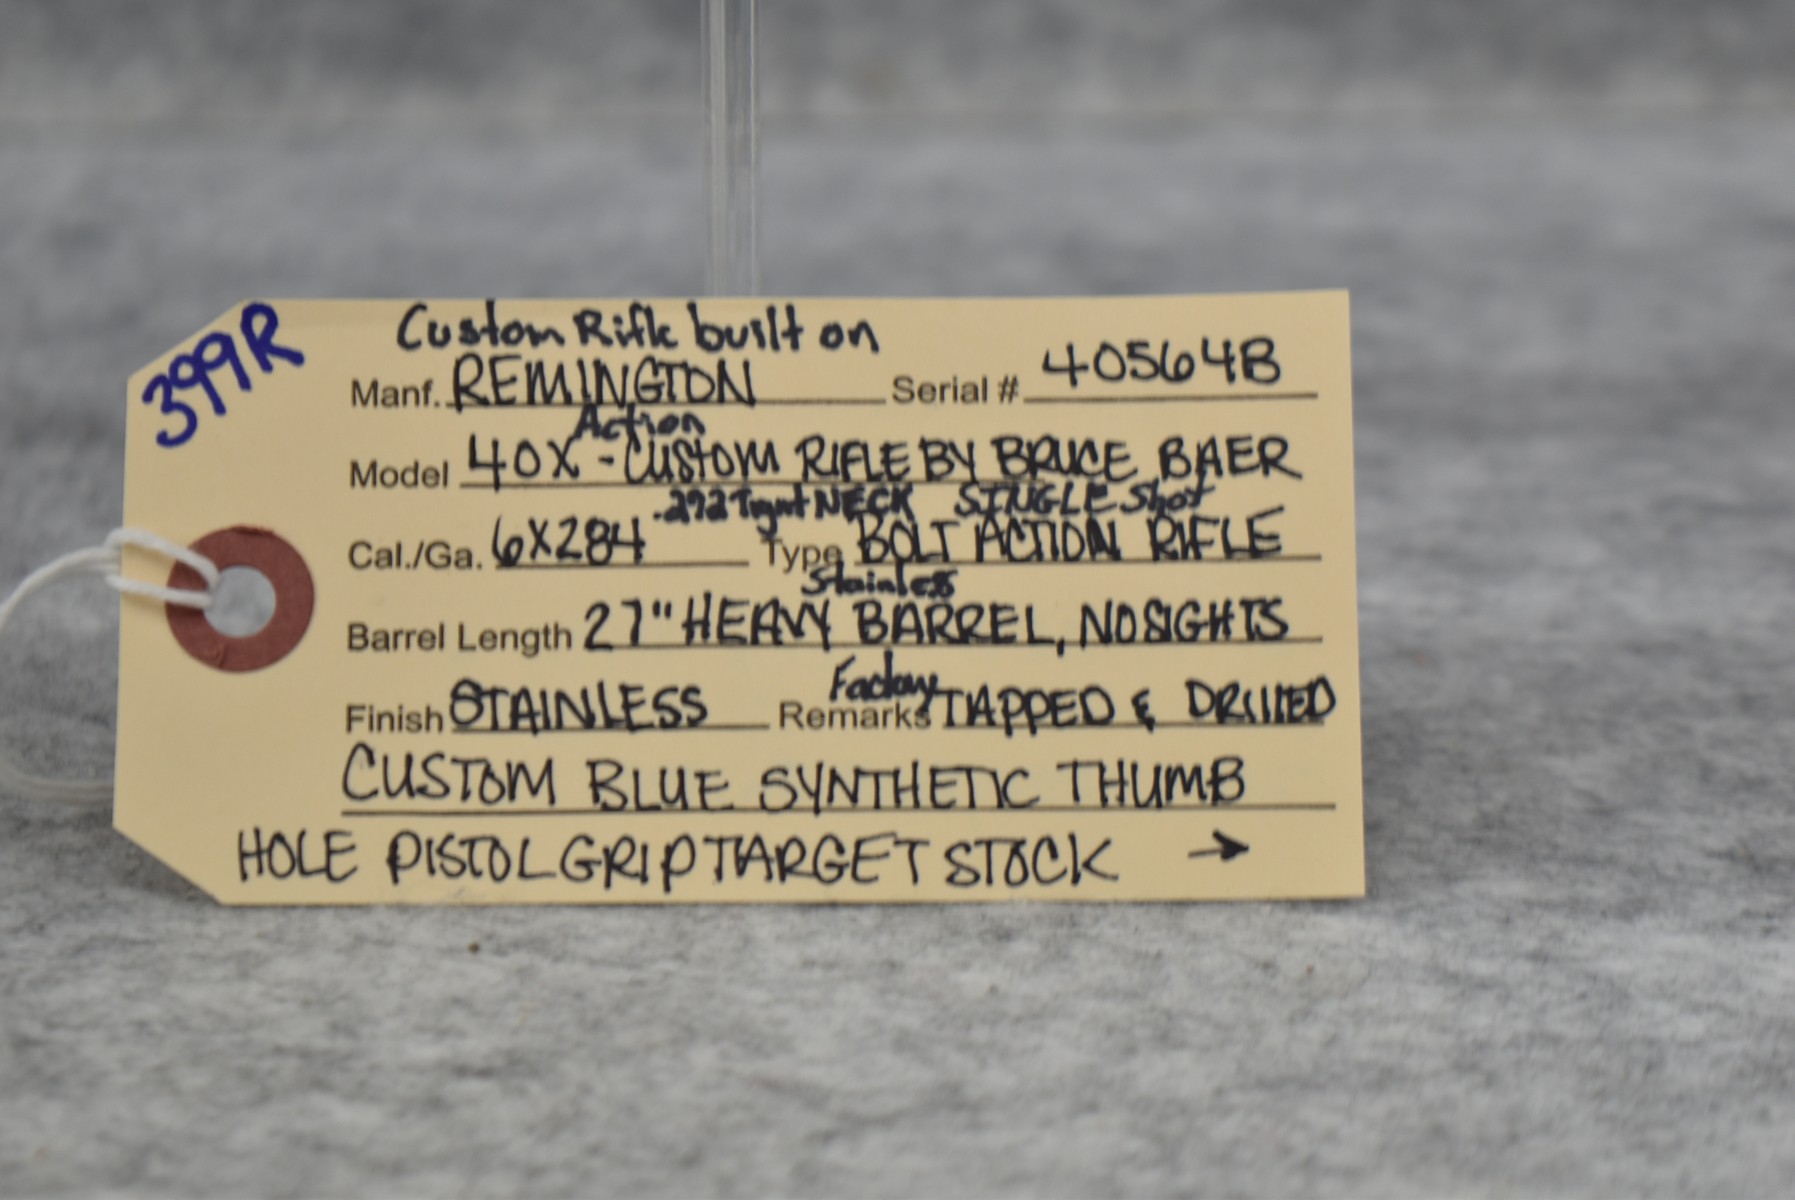 399R
Custom Rifle built on
Manf. REMINGTON Serial # 40564B
Action
Model 40X - CUSTOM RIFLE BY BRUCE BAER
.292 Tight NECK SINGLE Shot
Cal./Ga. 6X284 Type BOLT ACTION RIFLE
Stainless
Barrel Length 27" HEAVY BARREL, NO SIGHTS
Factory
Finish STAINLESS Remarks TAPPED & DRILLED
CUSTOM BLUE SYNTHETIC THUMB
HOLE PISTOL GRIP TARGET STOCK →